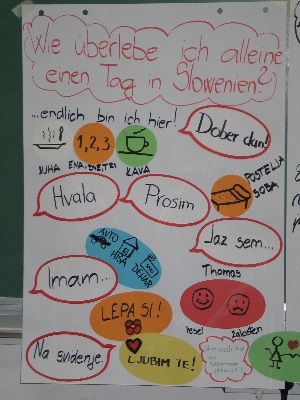 Wie überlebe ich alleine
einen Tag in Slowenien?
...endlich bin ich hier!
Dober dan!
1,2,3
JUHA
ENA, DVE, TRI
KAVA
POSTELJA
SOBA
Hvala
Prosim
Jaz sem...
Thomas
AVTO
HIŠA
DENAR
Imam...
LEPA SI!
vesel
žalosten
Na svidenje.
LJUBIM TE!